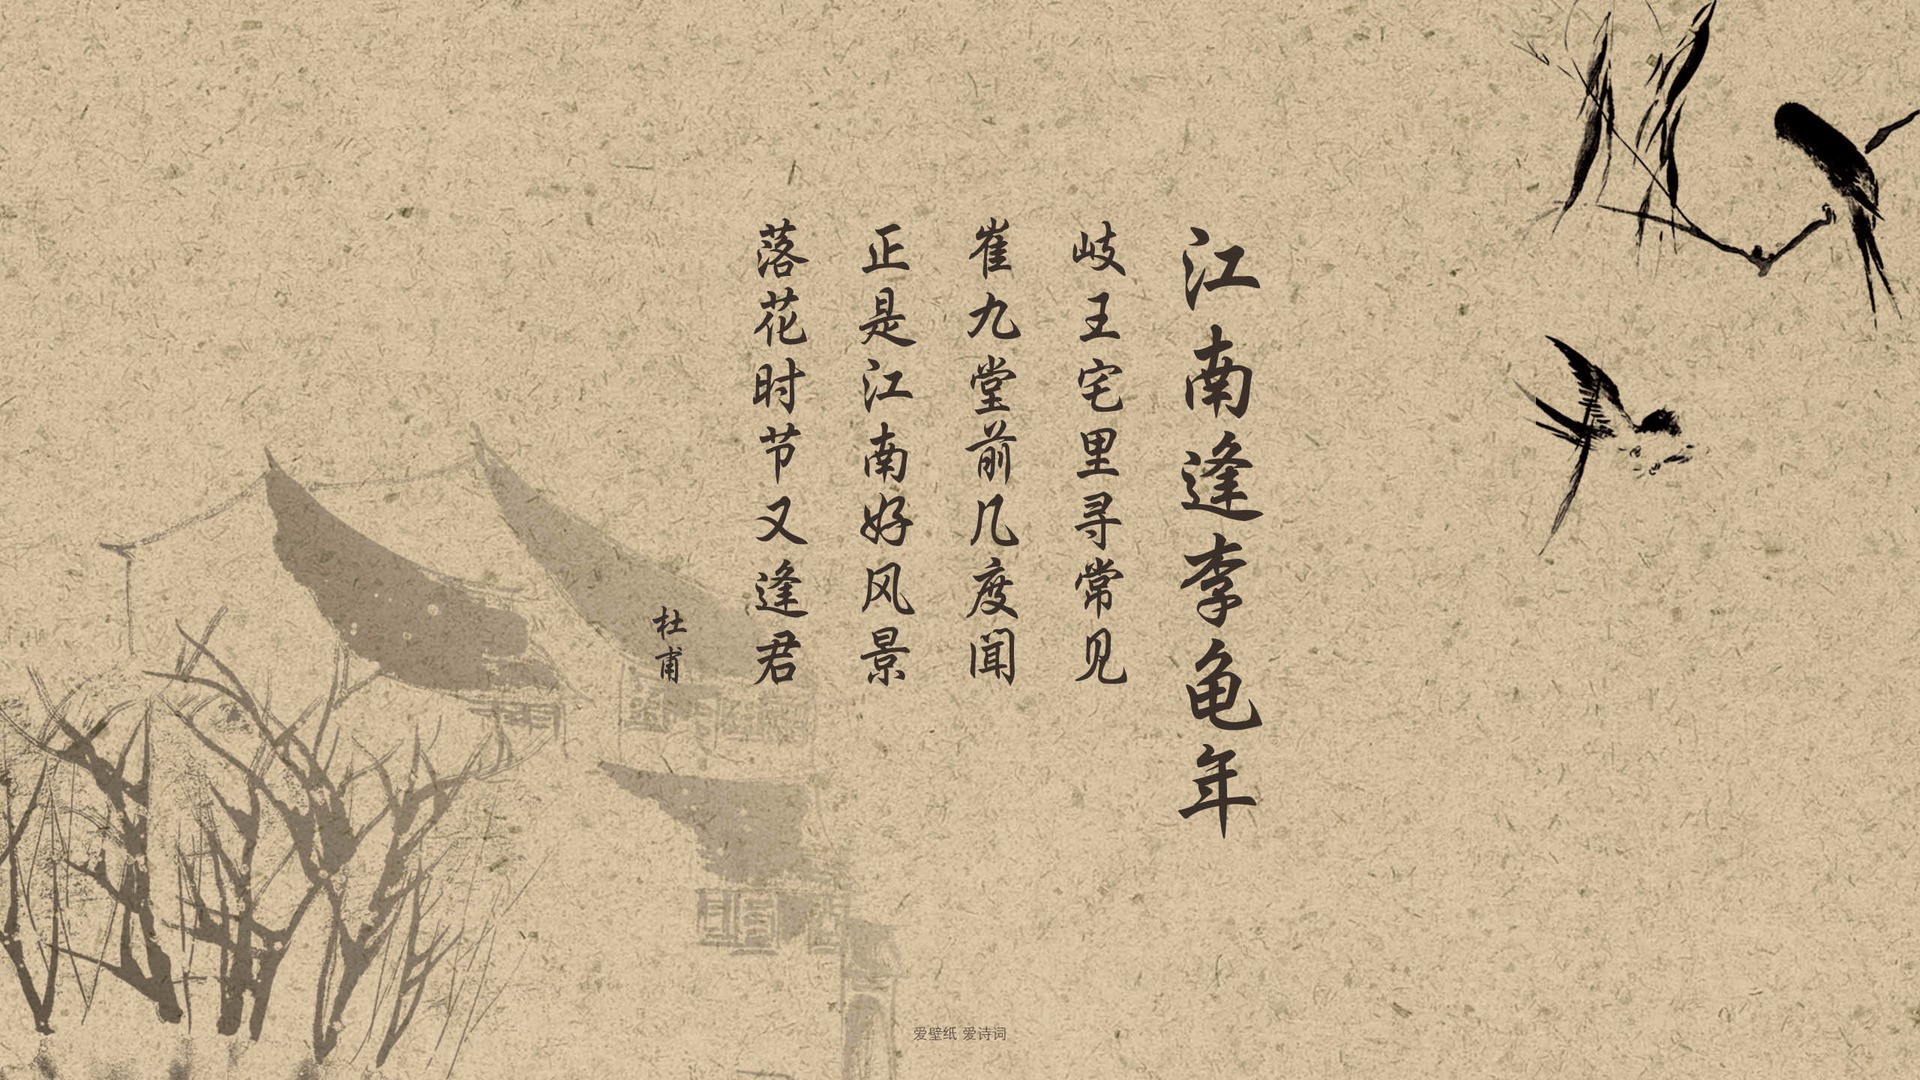 江南逢李龟年
岐王宅里寻常见
崔九堂前几度闻
正是江南好风景
落花时节又逢君
杜甫
爱壁纸 爱诗词